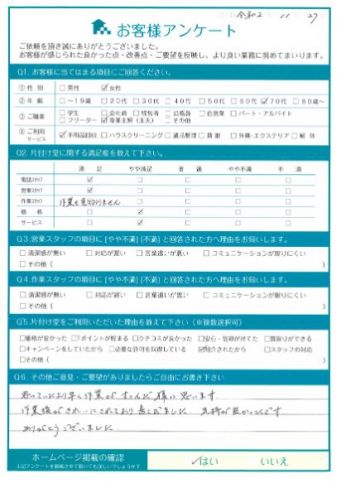 令和2 11 27
お客様アンケート
ご依頼を頂き誠にありがとうございました。
お客様が感じられた良かった点・改善点・ご要望を反映し、より良い業務に努めてまいります。
Q1. お客様に当てはまる項目にご回答ください。
① 性別 □男性 ☑女性
② 年齢 □~19歳 □20代 □30代 □40代 □50代 □60代 ☑70代 □80歳~
③ ご職業 □学生 □会社員 □経営者 □公務員 □自営業 □パート・アルバイト
□フリーター ☑専業主婦(主夫) □その他
④ ご利用サービス ☑不用品回収 □ハウスクリーニング □遺品整理 □買取 □外構・エクステリア □解体
Q2. 片付け堂に関する満足度を教えて下さい。
満足 やや満足 普通 やや不満 不満
電話スタッフ ☑ □ □ □ □
営業スタッフ ☑ □ □ □ □
作業スタッフ 作業を見ておりません
価格 □ ☑ □ □ □
サービス □ ☑ □ □ □
Q3. 営業スタッフの項目に [やや不満] [不満] と回答された方へ理由をお伺いします。
□清潔感が無い □対応が悪い □言葉遣いが悪い □コミュニケーションが取りにくい
□その他 (
Q4. 作業スタッフの項目に [やや不満] [不満] と回答された方へ理由をお伺いします。
□清潔感が無い □対応が悪い □言葉遣いが悪い □コミュニケーションが取りにくい
□その他 (
Q5. 片付け堂をご利用いただいた理由を教えて下さい (※複数選択可)
□価格が安かった □Tポイントが貯まる □クチコミが良かった □安心・信頼が持てた □買取りができる
□キャンペーンをしていたから □必要な許可を取得している □紹介されたから □スタッフの対応
□その他 (
Q6. その他ご意見・ご要望がありましたらご自由にお書き下さい
思っていたより早く作業がすすんだ様に思います。
作業後がきれいにされており
ありがとうございました。
ホームページ掲載の確認
上記アンケートを掲載させて頂いても宜しいでしょうか?
はい いいえ